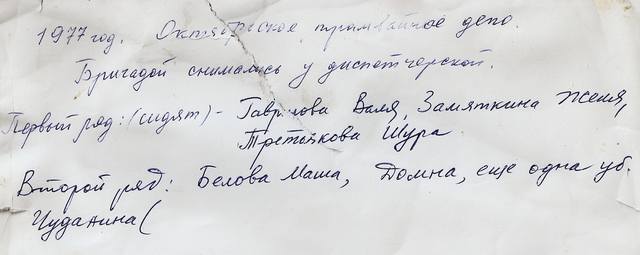 1977 год. Октябрьское трамвайное депо.
Бригадой снимались у диспетчерской.
Первый ряд: (сидят) - Гаврилова Валя, Замяткина Женя,
Третьякова Шура
Второй ряд: Белова Маша, Домна, еще одна уб.
Чуданина(